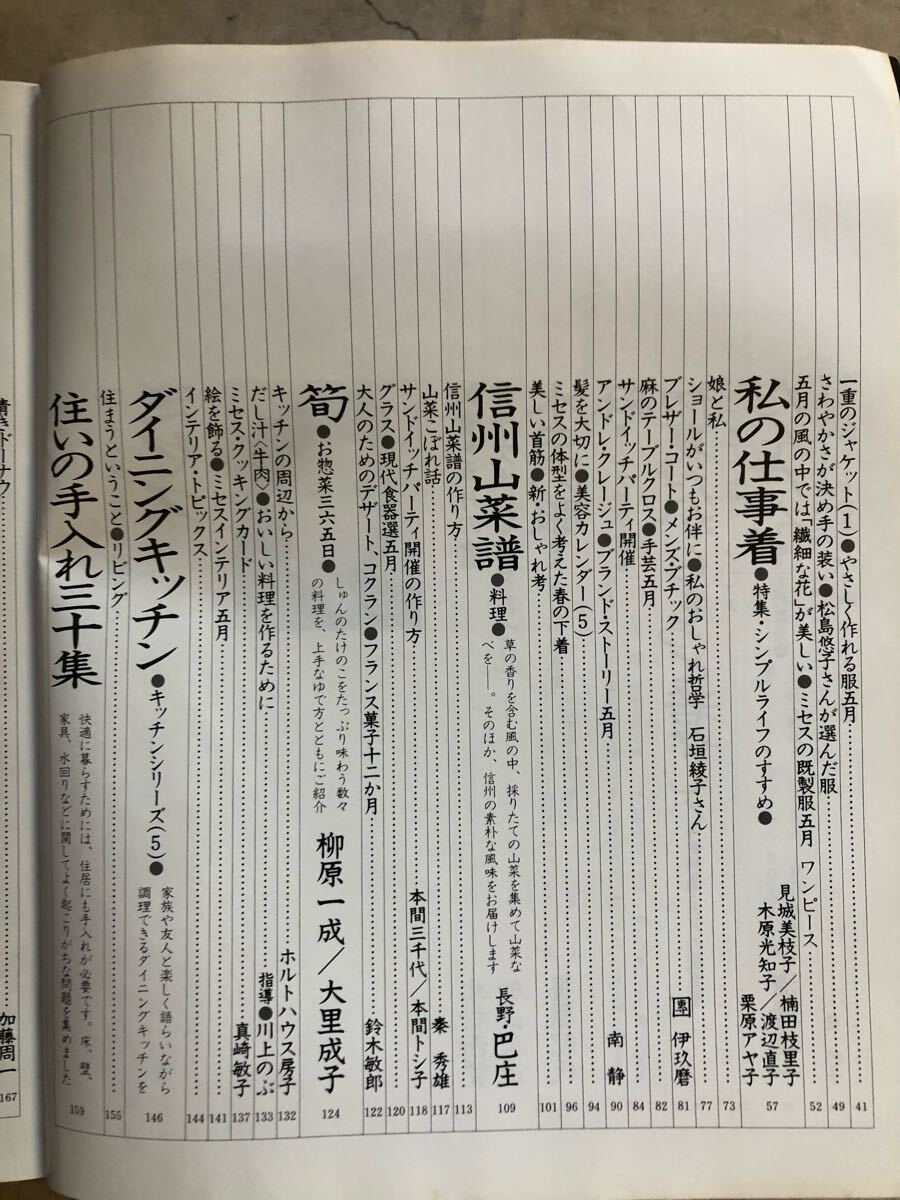 一重のジャケット(1)●やさしく作れる服五月 41
さわやかさが決め手の装い●松島悠子さんが選んだ服 49
五月の風の中では「繊細な花」が美しい●ミセスの既製服五月 ワンピース 52
私の仕事着●特集・シンプルライフのすすめ● 見城美枝子/楠田枝里子 木原光知子/渡辺直子 栗原アヤ子 57
娘と私 73
ショールがいつもお伴に●私のおしゃれ哲学 石垣綾子さん 77
ブレザー・コート●メンズ・ブチック 團 伊玖磨 81
麻のテーブルクロス●手芸五月 82
サンドイッチパーティ開催 84
アンドレ・クレージュ●ブランド・ストーリー五月 南 静 90
髪を大切に●美容カレンダー(5) 94
ミセスの体型をよく考えた春の下着 96
美しい首筋●新・おしゃれ考 101
信州山菜譜●料理● 草の香りを含む風の中、採りたての山菜を集めて山菜な
べを──。そのほか、信州の素朴な風味をお届けします 長野・巴庄 109
信州山菜譜の作り方 113
山菜こぼれ話 秦 秀雄 117
サンドイッチパーティ開催の作り方 本間三千代/本間トシ子 118
グラス●現代食器選五月 120
大人のためのデザート、コクラン●フランス菓子十二か月 鈴木敏郎 122
筍●お惣菜三六五日● しゅんのたけのこをたっぷり味わう数々
の料理を、上手なゆで方とともにご紹介 柳原一成/大里成子 124
キッチンの周辺から ホルトハウス房子 132
だし汁〈牛肉〉●おいしい料理を作るために 指導●川上のぶ 133
ミセス・クッキングカード 真崎敏子 137
絵を飾る●ミセスインテリア五月 141
インテリア・トピックス 144
ダイニングキッチン●キッチンシリーズ(5)● 家族や友人と楽しく語らいながら
調理できるダイニングキッチンを 146
住まうということ●リビング 155
住いの手入れ三十集 快適に暮らすためには、住居にも手入れが必要です。床、壁、
家具、水回りなどに関してよく起こりがちな問題を集めました 159
加藤周一 167